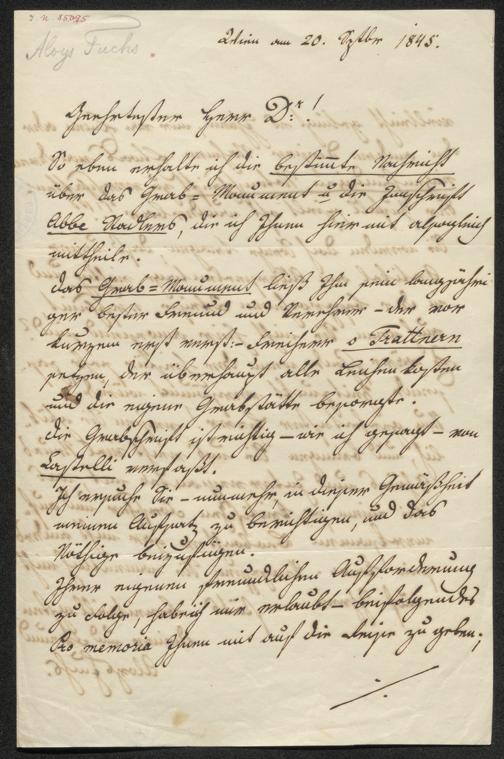 I. N. 85095
Aloys Fuchs.
Wien am 20. Septbr 1845.
Geehrtester Herr Dr!
So eben erhalte ich die bestimmte Nachricht
über das Grab-Monument u die Innschrift
Abbe Stadlers, die ich Ihnen hiermit alsogleich
mittheile.
das Grab-Monument ließ Ihm sein langjähri
ger bester Freund und Verehrer – der vor
kurzem erst verst: Freiherr v Trattnern
setzen, der überhaupt alle Leichen kosten
und die eigene Grabstätte besorgte.
die Grabschrift ist richtig – wie ich gesagt – von
Castelli verfaßt.
Ich ersuche Sie – nunmehr, in dieser Gemäßheit
meinen Aufsatz zu berichtigen, und das
Nöthige beizufügen.
Ihrer eigenen freundlichen Aufforderung
zu Folge, habe ich mir erlaubt – beifolgendes
Pro memoria Ihnen mit auf die Reise zu geben;